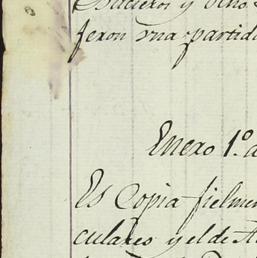 y ocho
feron vna partida
Enero 1.º a
Es Copia fielmen
culares y el de A